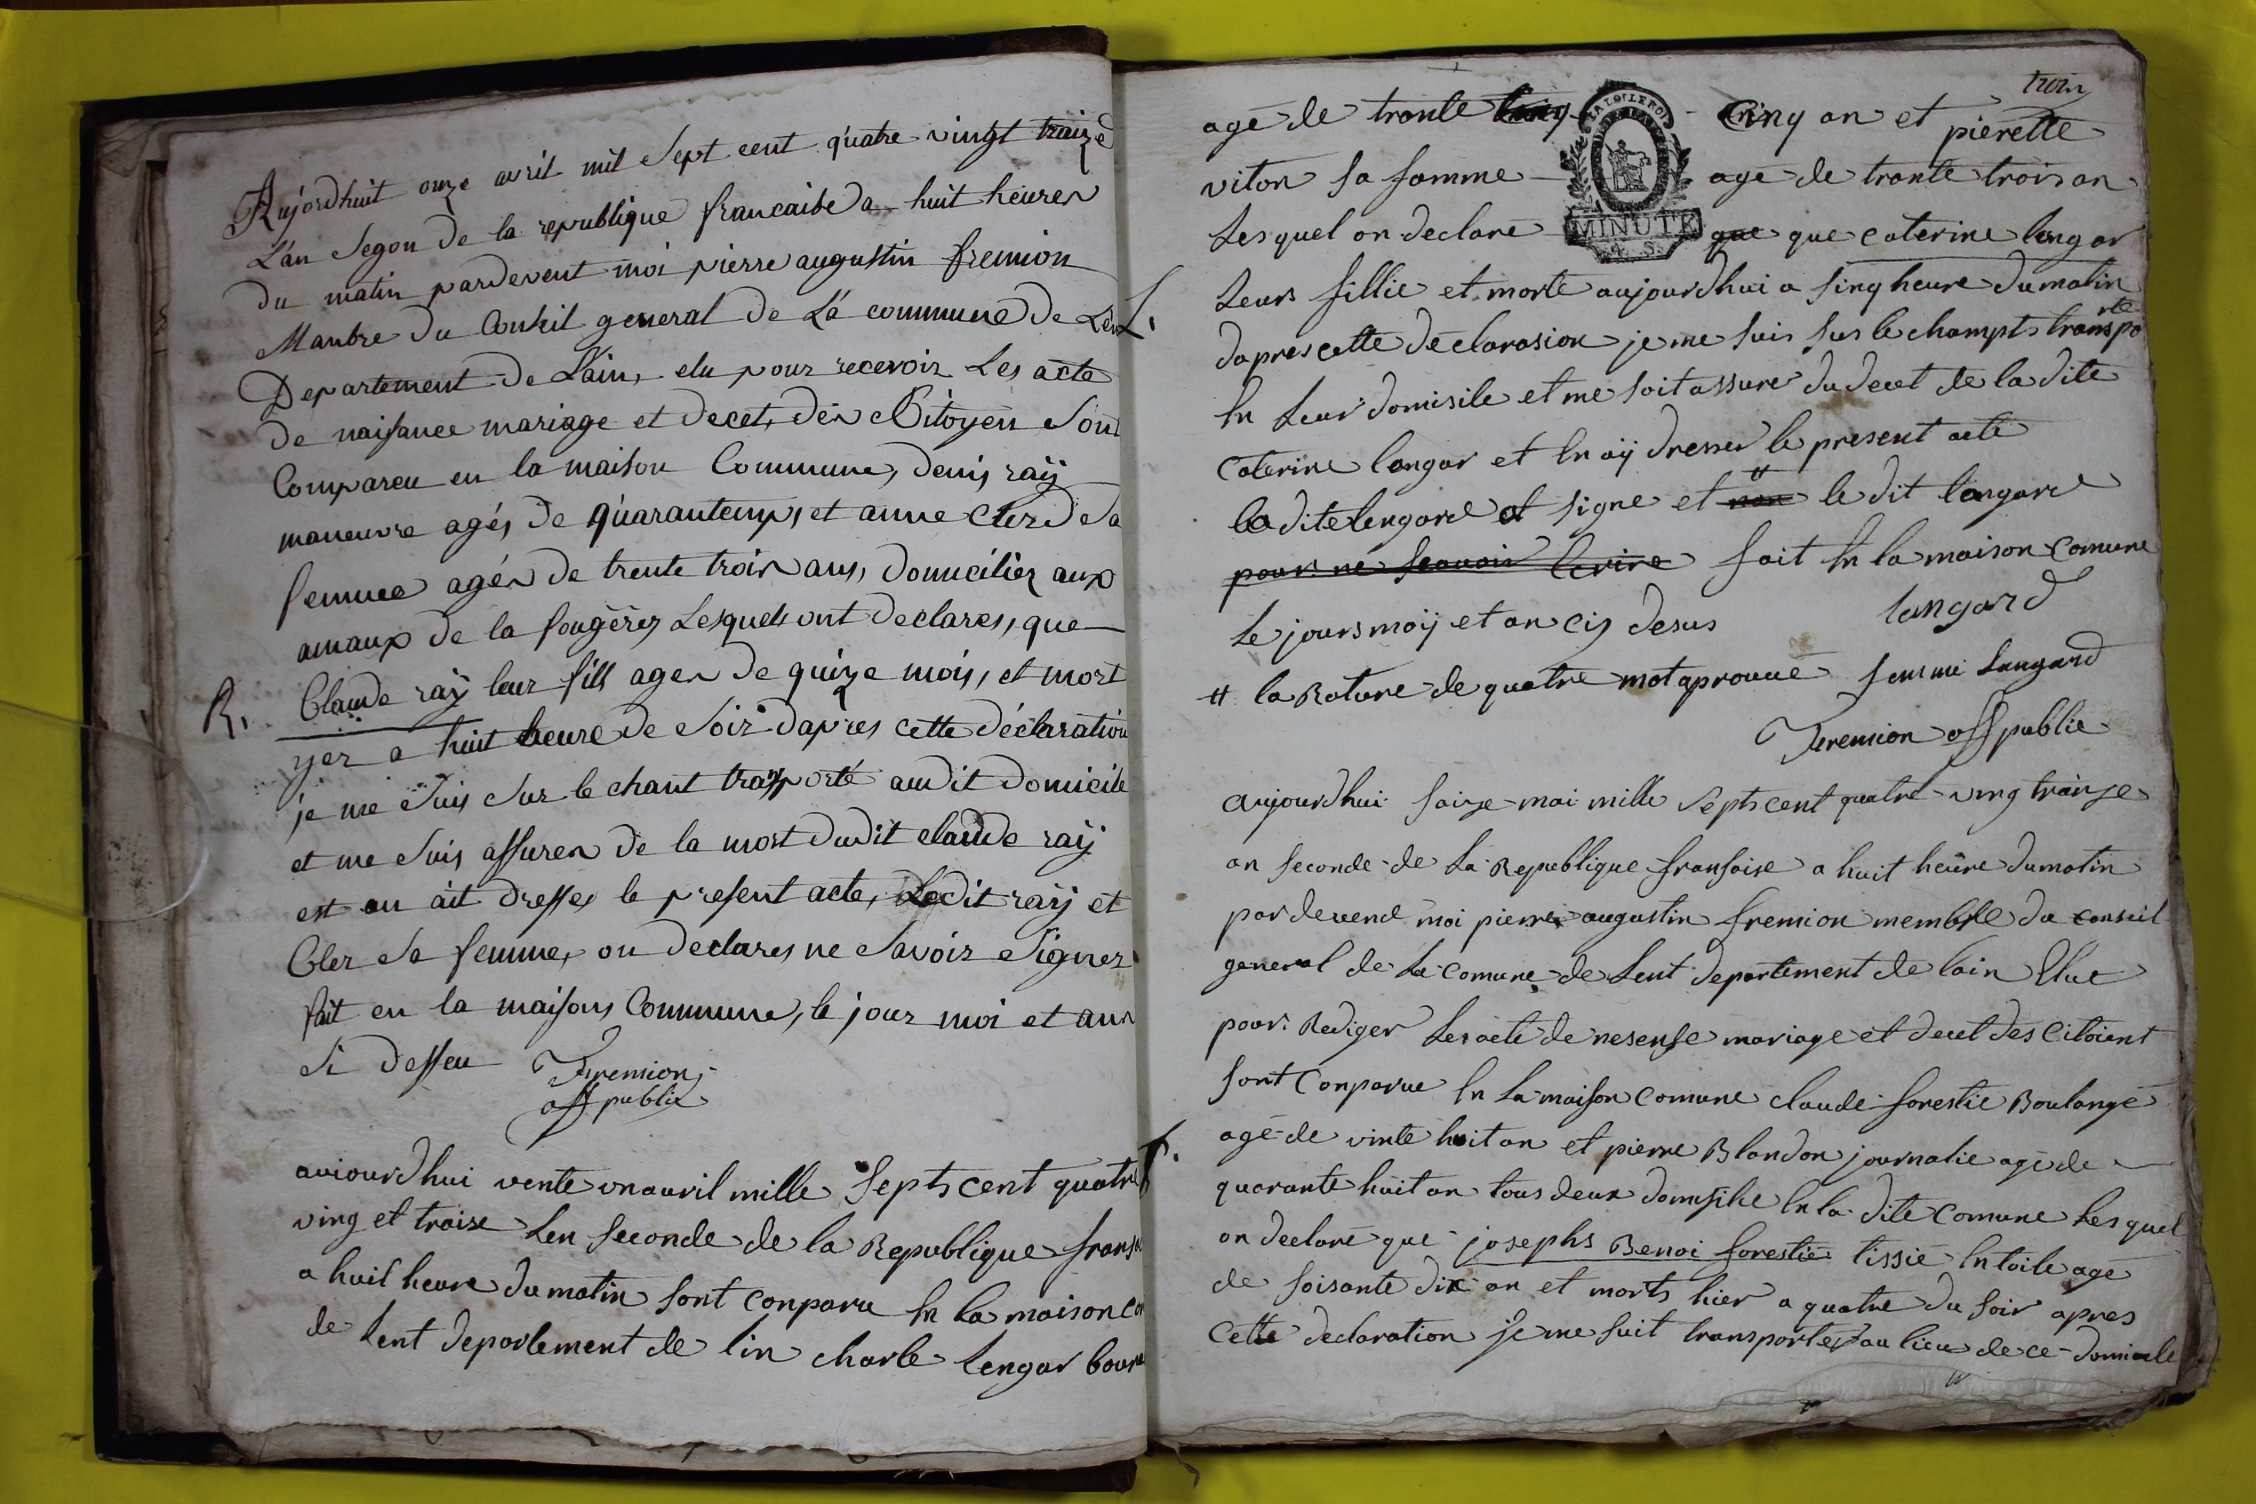 Aujordhuit onze avril mil sept cent quatre vingt traize
L'an segon de la republique francaise a huit heures
du matin pardevent moi pierre augustin fremion
Manbre du Conseil general de La commune de Len
Departement de L'ain, elu pour recevoir Les acte
de naisance mariage et decet, des Citoyen sont
Compareu en la maison Commune, denis raÿ
maneuvre agés de quarantemps, et anne Cler de sa
femme agés de trente trois ans, domicilier aux
amaux de la fougères Lesquels ont declares, que
R. Claude raÿ leur fill ages de quize mois, et mort
yer a huit heure de soir daprès cette déclaration
je me suis sur le chant transporté audit domicile
et me suis assures de la mort dudit claude raÿ
est en ait dresse, le present acte, Ledit raÿ et
Cler sa femme, on declares ne savoir signer.
fait en la maisons Commune, le jour moi et ans
si dessu
Fremion
off public
aujourdhui vente un avril mille septs cent quatre
ving et traise Len seconde de la Republique frans
a huit heure du matin sont conparu En La maison co
de Lent deportement de lin charle Lengar bour
trois
age de trante cinq an et pierette
viton sa famme age de trante trois an
MINUTE
4. S.
Les quel on declare que que caterine langar
L. Leurs fillie et morte aujourdhui a sinq heure du matin
dapres cette declarasion je me suis sur le champts transpo
rte
En Leur domisile et me soit assure du decet de la dite
caterine langar et En aÿ dresser le present acte
la dite lengard et signe et # non le dit langard
pour ne scavoir Ecrire fait En la maison comune
Le jours moÿ et an cis desus
langard
# la Rature de quatre mot aprouvé femme Langard
Fremion off public
aujourdhui saize mai mille septs cent quatre ving traize
an seconde de La Republique fransaise a huit heure du matin
par devend moi pierre augustin fremion membre du conseil
general de La comune de Lent departement de lain Elue
pour Rediger Les acte de nesense mariage et decet des Citoient
sont Conparue En La maison Comune claude forestie Boulange
F. age de vinte huit an et pierre Blandon journalie age de
quarante huit an tous deux domisilie En la dite Comune Les quel
on declaré que josephs Benoi forestie tissie En toile age
de soisante dix an et morts hier a quatre du soir apres
Cette declaration je me suit transporter au lieu de ce domicile